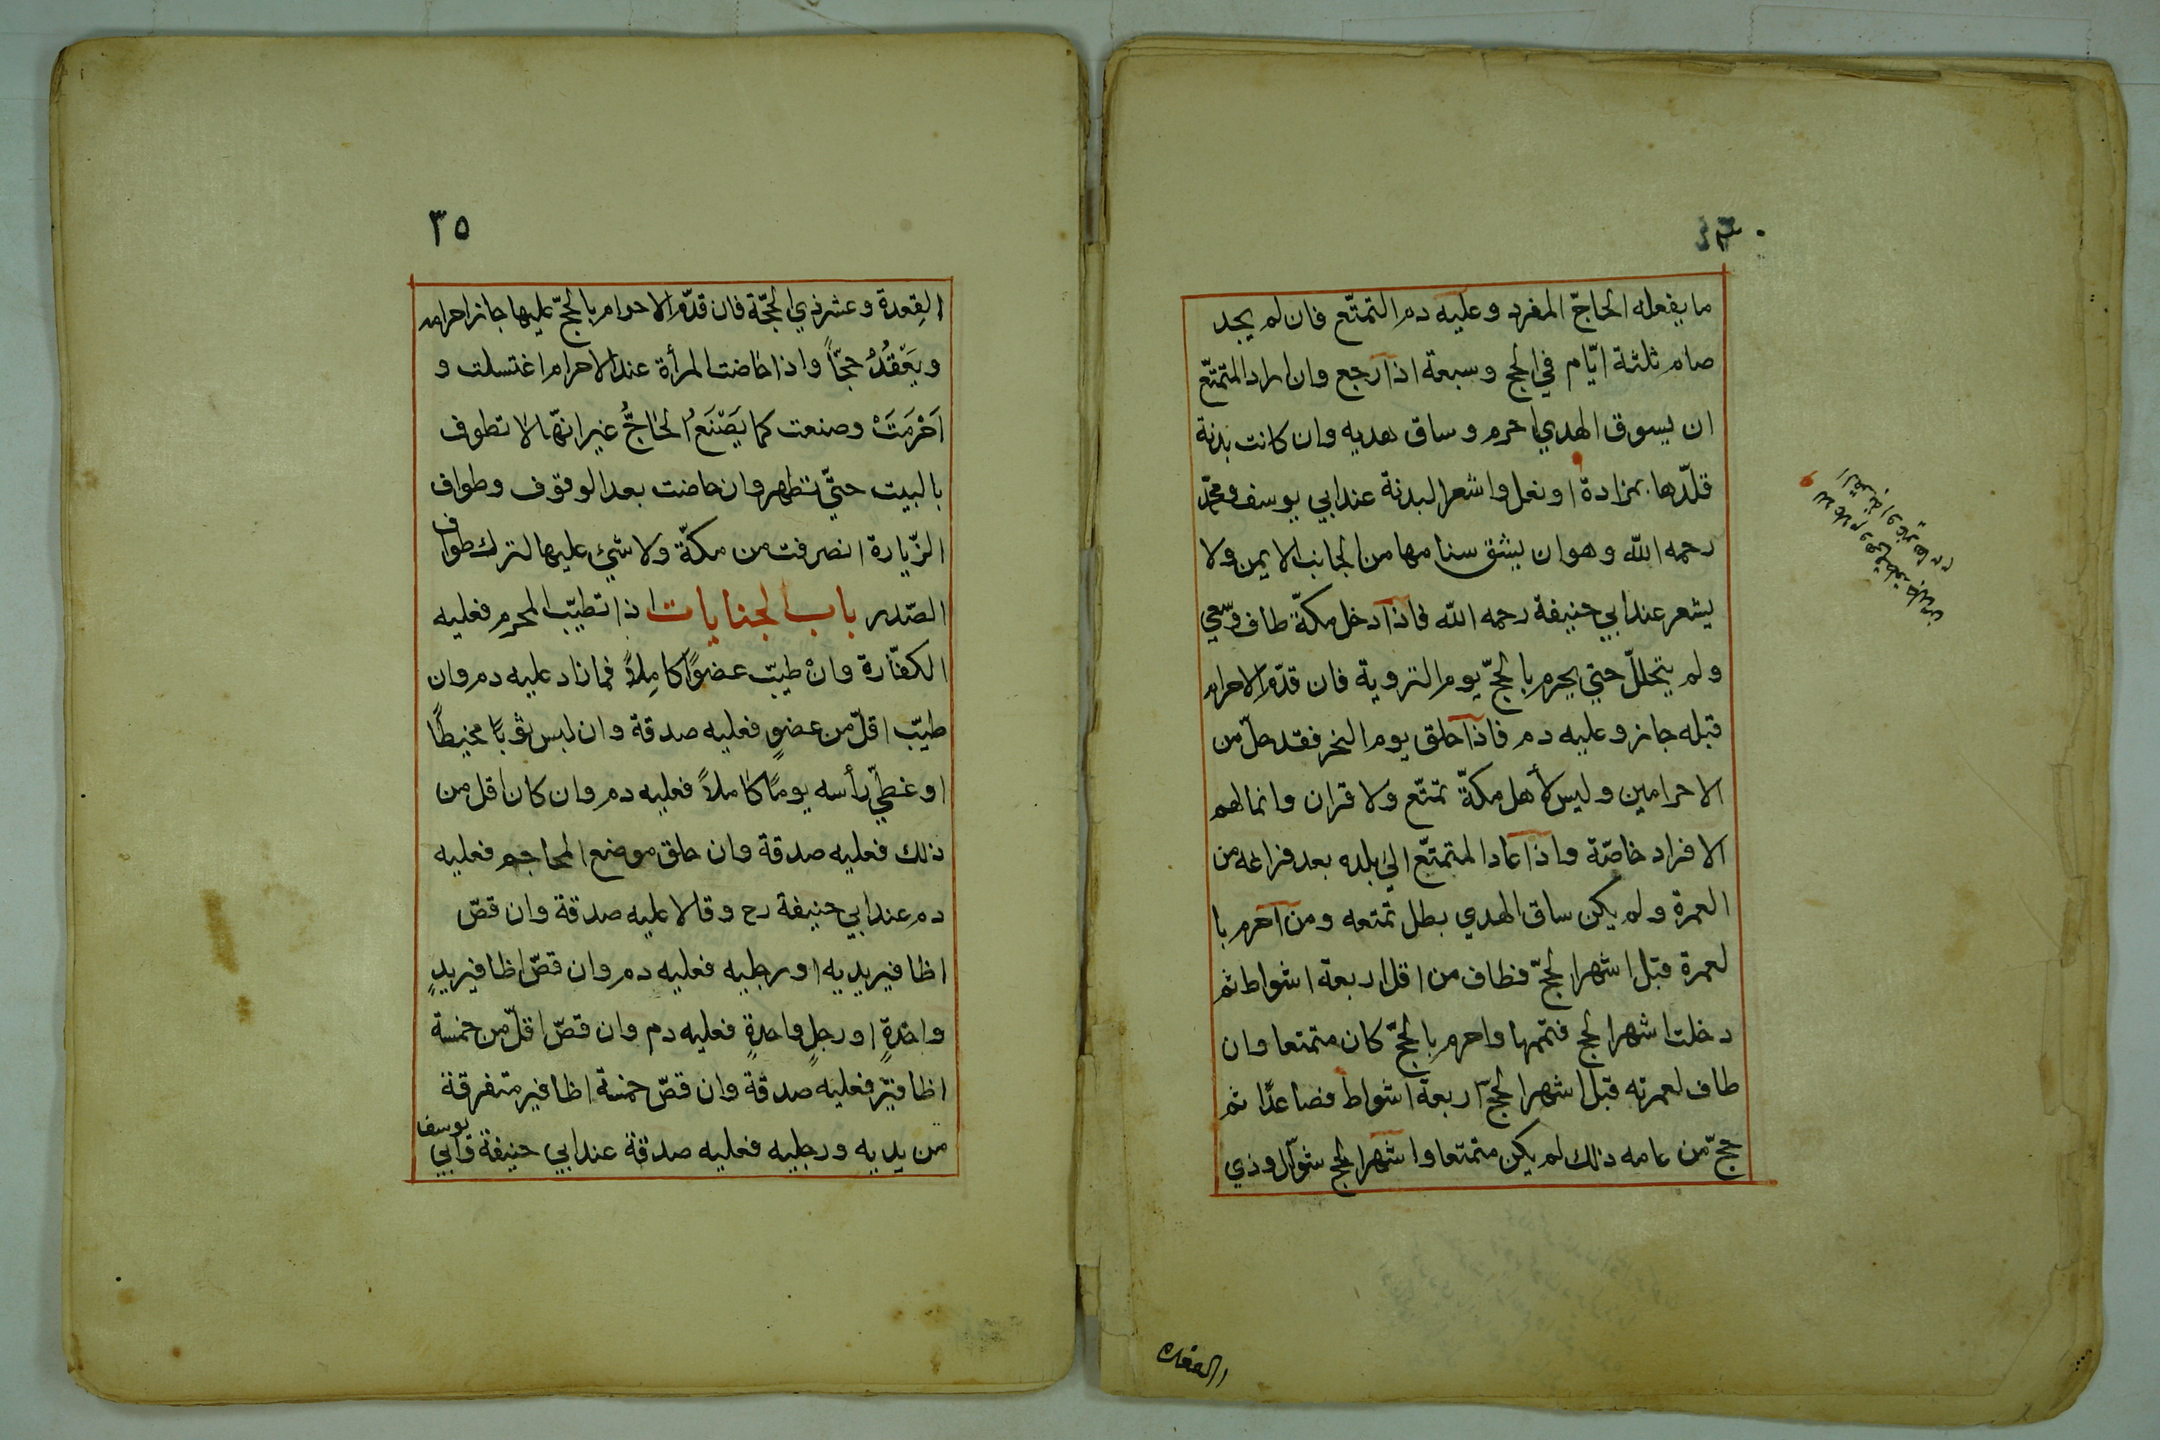 ما يفعله الحاجّ المفرد وعليه دم التمتّع فان لم يجد
صام ثلثة ايّام في الحج وسبعة اذا رجع وان اراد المتمتّع
ان يسوق الهدي احرم وساق هديه وان كانت بدنة
قلّدها بمزادة او نعل واشعر البدنة عند ابي يوسف ومحمّد
رحمه اللّه وهو ان يشق سنامها من الجانب الايمن ولا
يشعر عند ابي حنيفة رحمه اللّه فاذا دخل مكّة طاف وسعي
ولم يتحللّ حتي يحرم بالحجّ يوم التروية فان قدّم الاحرام
قبله جاز وعليه دم فاذا حلق يوم النحر فقد حلّ من
الاحرامين وليس لأهل مكّة تمتّع ولا قران وانما لهم
الافراد خاصّة واذا عاد المتمتّع الي بلده بعد فراغه من
العمرة ولم يكن ساق الهدي بطل تمتعه ومن احرم با
لعمرة قبل اشهر الحجّ فطاف من اقل اربعة اشواط ثم
دخلت اشهر الحج فتممها واحرم بالحجّ كان متمتعا وان
طاف لعمرته قبل اشهر الحجّ اربعة اشواط فصاعدًا ثم
حجّ من عامه ذلك لم يكن متمتعا واشهر الحج شوّال وذي
القعدة
٣٥
القِعدة وعشر ذي الحجّة فان قدّم الاحرام بالحجّ عليها جاز احرامه
ويَعْقُدُ حجّاً واذا حاضت المرأة عند الاحرام اغتسلت و
اَحْرَمَتَْ وصنعت كما يَصْنَعُ الحاجُّ غير انّها لا تطوف
بالبيت حتيّ تطهر وان حاضت بعد الوقوف وطواف
الزّيارة انصرفت من مكّة ولا شيئ عليها لترك طواف
الصّدر باب الجنايات اذا تطيّب المحرم فعليه
الكفّارة وانْ طيّب عضوًا كامِلاً فما زاد عليه دم وان
طيّب اقلّ من عضوٍ فعليه صدقة وان لبس ثوبًا مخيطًا
او غطّي رأسه يومًا كاملاً فعليه دم وان كان اقل من
ذلك فعليه صدقة وان حلق موضع المحاجم فعليه
دم عند ابي حنيفة رح وقالا عليه صدقة وان قصّ
اظافير يديه او رجليه فعليه دم وان قصّ اظافير يدٍ
واحدةٍ او رجلٍ واحدةٍ فعليه دم وان قصّ اقلّ من خمسة
اظافير فعليه صدقة وان قصّ خمسة اظافير متفرقة
من يديه ورجليه فعليه صدقة عند ابي حنيفة وابي يوسف